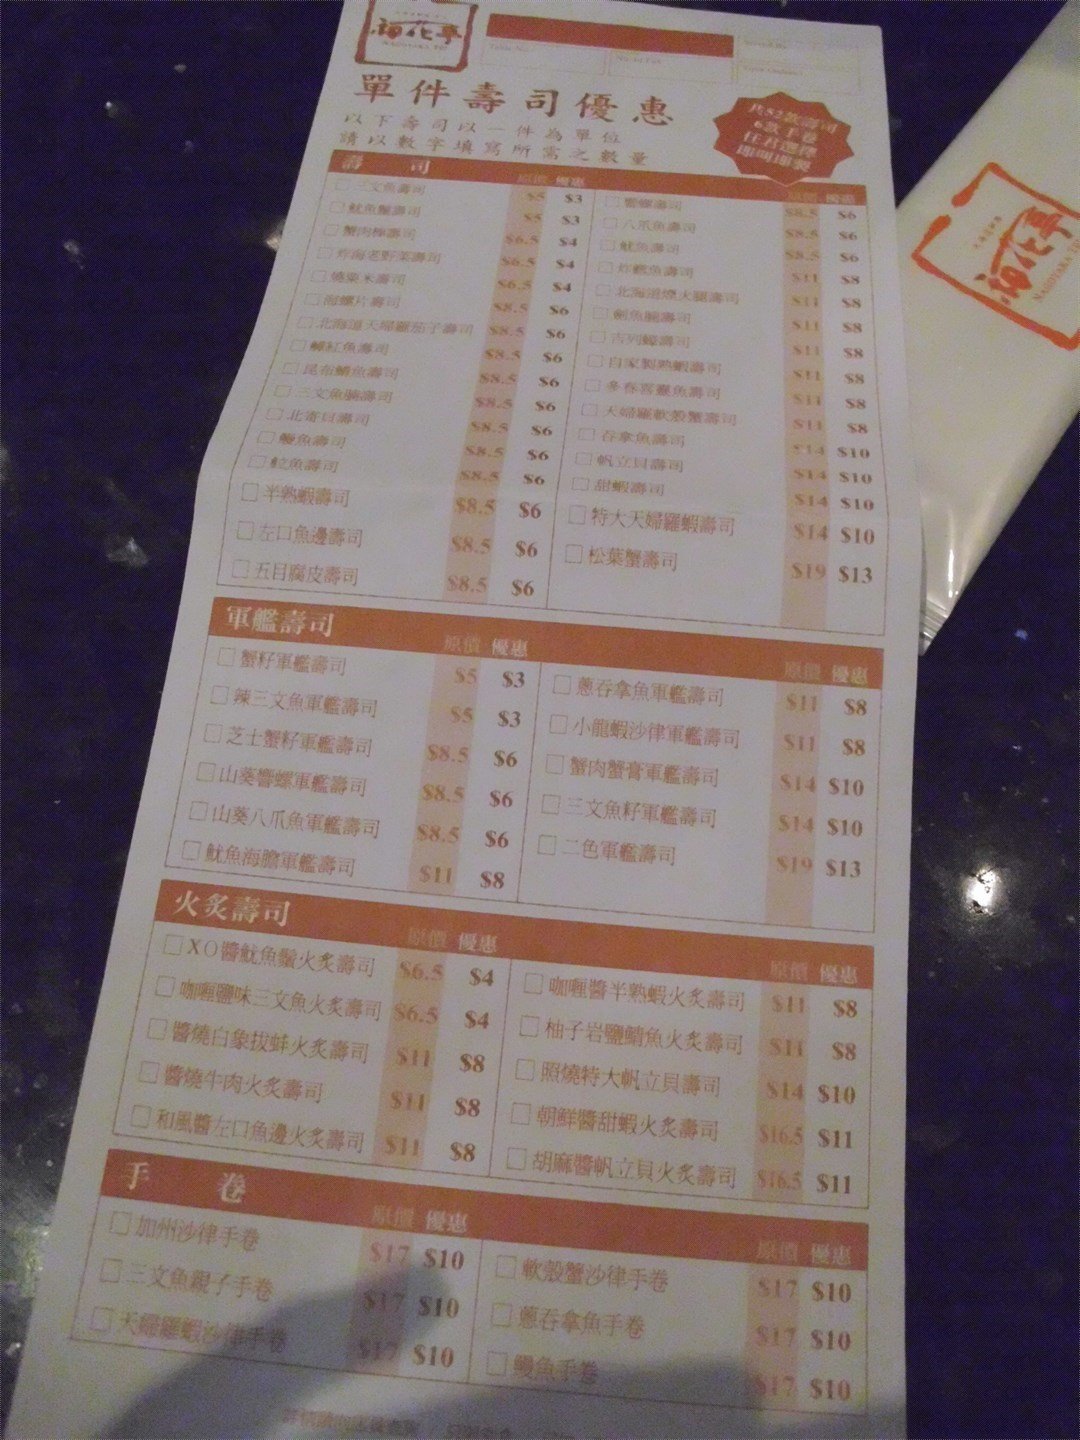 單件壽司優惠
以下壽司以一件為單位
請以數字填寫所需之數量
共52款壽司
6款手卷
任君選擇
壽 司 原價 優惠
三文魚壽司 $5 $3
魷魚鬚壽司 $5 $3
蟹肉棒壽司 $6.5 $4
炸海老野菜壽司 $6.5 $4
燒粟米壽司 $6.5 $4
海螺片壽司 $8.5 $6
北海道天婦羅茄子壽司 $8.5 $6
鱒紅魚壽司 $8.5 $6
昆布鯡魚壽司 $8.5 $6
三文魚腩壽司 $8.5 $6
北寄貝壽司 $8.5 $6
鯛魚壽司 $8.5 $6
魚壽司 $8.5 $6
半熟蝦壽司 $8.5 $6
左口魚邊壽司 $8.5 $6
五目腐皮壽司 $8.5 $6
原價 優惠
響螺壽司 $8.5 $6
八爪魚壽司 $8.5 $6
魷魚壽司 $8.5 $6
炸鱈魚壽司 $11 $8
北海道煙火腿壽司 $11 $8
劍魚腩壽司 $11 $8
吉列蠔壽司 $11 $8
自家製熟蝦壽司 $11 $8
多春喜靈魚壽司 $11 $8
天婦羅軟殼蟹壽司 $11 $8
吞拿魚壽司 $14 $10
帆立貝壽司 $14 $10
甜蝦壽司 $14 $10
特大天婦羅蝦壽司 $14 $10
松葉蟹壽司 $19 $13
軍艦壽司 原價 優惠
蟹籽軍艦壽司 $5 $3
辣三文魚軍艦壽司 $5 $3
芝士蟹籽軍艦壽司 $8.5 $6
山葵響螺軍艦壽司 $8.5 $6
山葵八爪魚軍艦壽司 $8.5 $6
魷魚海膽軍艦壽司 $11 $8
原價 優惠
蔥吞拿魚軍艦壽司 $11 $8
小龍蝦沙律軍艦壽司 $11 $8
蟹肉蟹膏軍艦壽司 $14 $10
三文魚籽軍艦壽司 $14 $10
二色軍艦壽司 $19 $13
火炙壽司 原價 優惠
XO醬魷魚鬚火炙壽司 $6.5 $4
咖喱鹽味三文魚火炙壽司 $6.5 $4
醬燒白象拔蚌火炙壽司 $11 $8
醬燒牛肉火炙壽司 $11 $8
和風醬左口魚邊火炙壽司 $11 $8
原價 優惠
咖喱醬半熟蝦火炙壽司 $11 $8
柚子岩鹽鯖魚火炙壽司 $11 $8
照燒特大帆立貝壽司 $14 $10
朝鮮醬甜蝦火炙壽司 $16.5 $11
胡麻醬帆立貝火炙壽司 $16.5 $11
手 卷 原價 優惠
加州沙律手卷 $17 $10
三文魚親子手卷 $17 $10
天婦羅蝦沙律手卷 $17 $10
原價 優惠
軟殼蟹沙律手卷 $17 $10
蔥吞拿魚手卷 $17 $10
鰻魚手卷 $17 $10